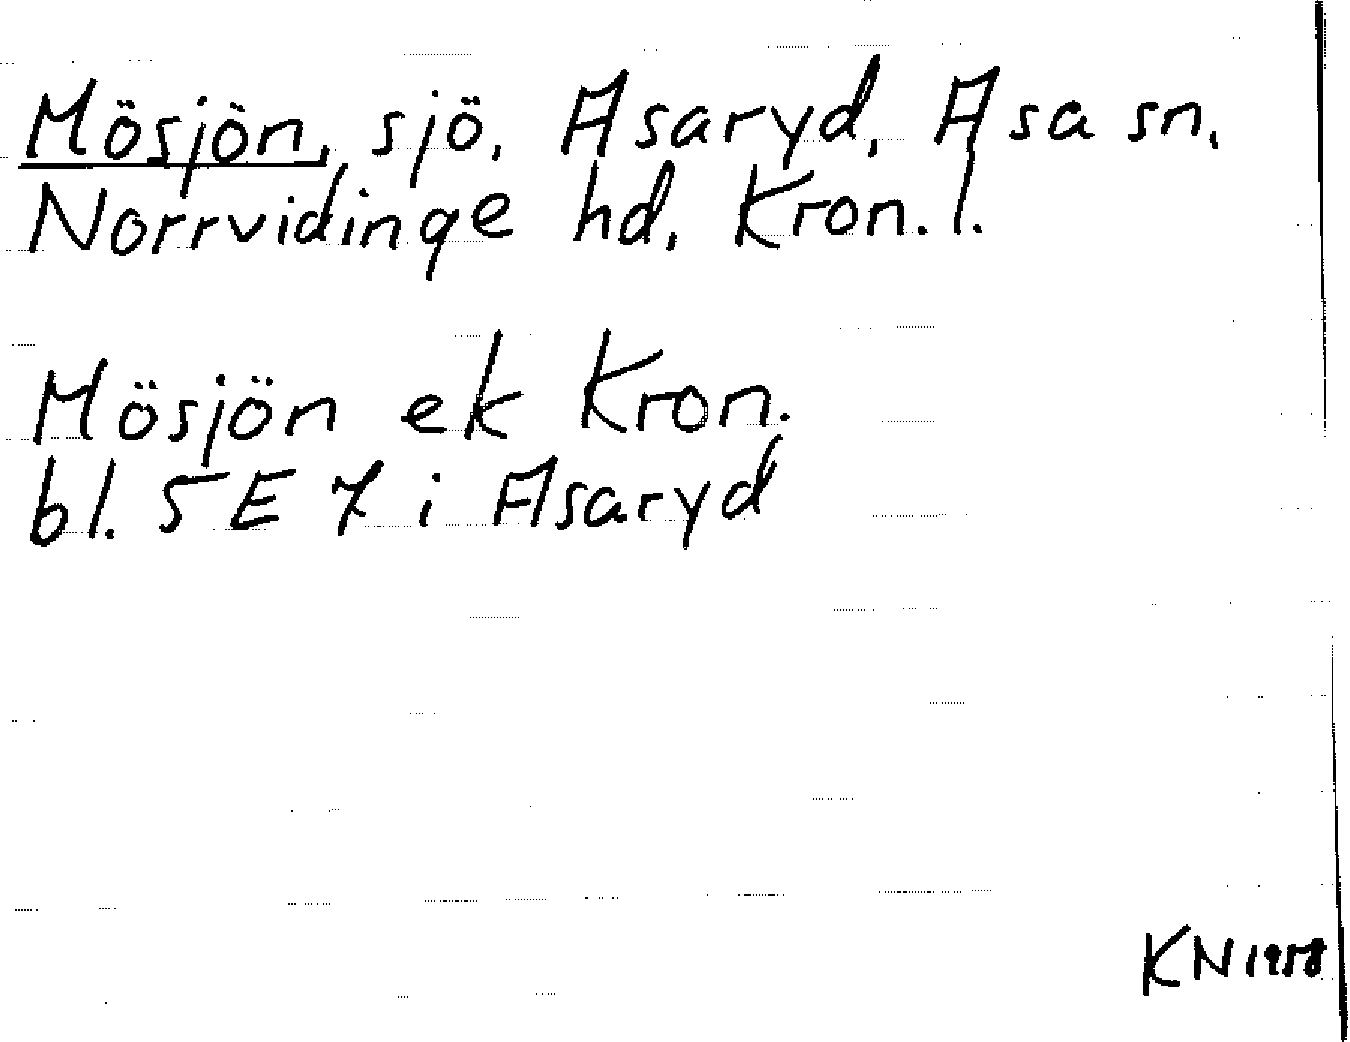 Mösjön, sjö, Asaryd, Asa sn,
Norrvidinge hd, Kron. l.
Mösjön ek Kron.
bl. 5 E 7 i Asaryd
KN 1958